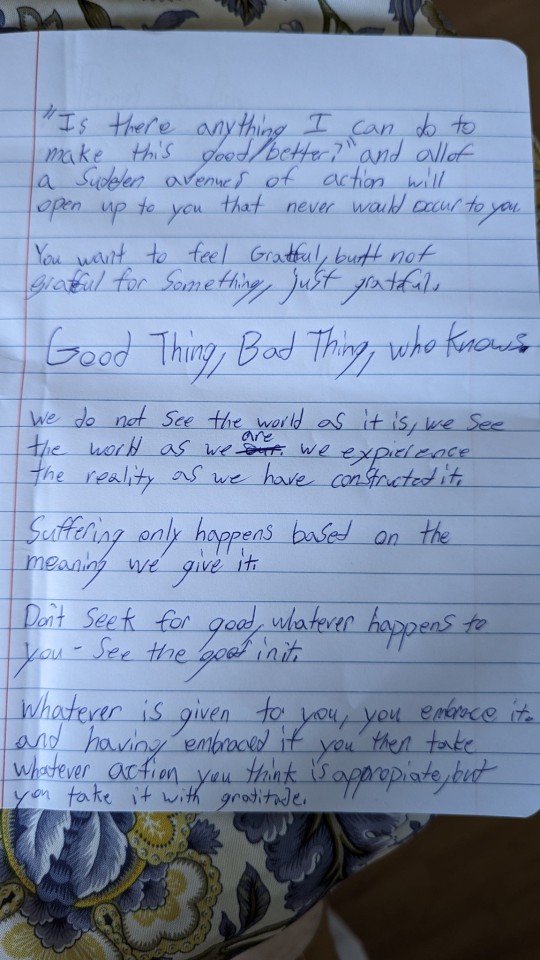 "Is there anything I can do to
make this good/better?" and allof
a Sudden avenues of action will
open up to you that never would occur to you.
You want to feel Gratful, butt not
grateful for Something, just gratful.
Good Thing, Bad Thing, who knows.
We do not see the world as it is, we see
the world as we are. we expierence
the reality as we have constructed it.
Suffering only happens based on the
meaning we give it.
Don't Seek for good, whatever happens to
you - See the good in it.
Whatever is given to you, you embrace it.
and having embraced it you then take
whatever action you think is appropiate, but
you take it with gratitude.